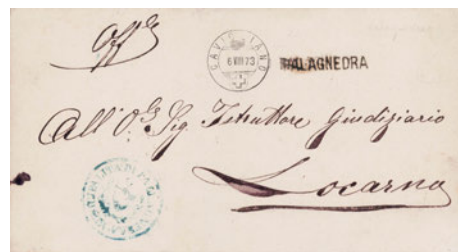 Off.º
CAVIGLIANO
6 VIII 73
PALAGNEDRA
All' O.º Sig. Istruttore Giudiziario
Locarno